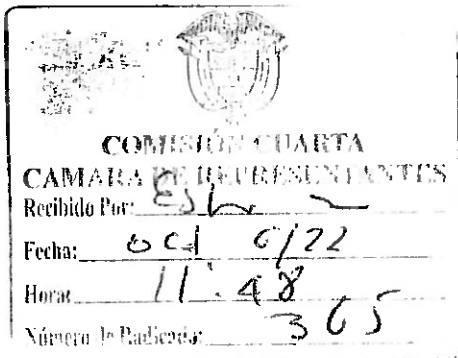 COMISIÓN CUARTA
CAMARA DE REPRESENTANTES
Recibido Por:
Fecha: oct 6/22
Hora: 11:48
Número de Radicado: 365